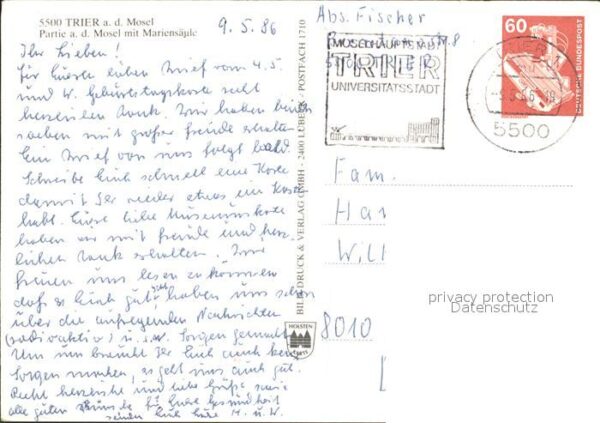 5500 TRIER a. d. Mosel
Partie a. d. Mosel mit Mariensäule
9. 5. 86
Ihr Lieben!
Für Euren lieben Brief vom 4.5
und W. Geburtstagskarte recht
herzlichen Dank. Wir haben beides
soeben mit großer Freude erhalten.
Ein Brief von uns folgt bald.
Schreibe Euch schnell eine Karte
damit Ihr wieder etwas ein Karte
habt. Eure liebe Museumskarte
haben wir mit Freude und herz-
lichem Dank erhalten. Wir
freuen uns lesen zu können
daß es Euch gut geht, haben uns schon
über die aufregenden Nachrichten
(radioaktiv) u.s.w. Sorgen gemacht.
Um uns braucht Ihr Euch auch keine
Sorgen machen, es geht uns auch gut.
Recht herzliche und liebe Grüße sowie
alle guten Wünsche für Eure Gesundheit
senden Euch Eure M. u. W.
BILD+DRUCK & VERLAG GMBH · 2400 LÜBECK · POSTFACH 1710
HOLSTEN
Abs. Fischer
MOSELHAUPTSTADT
TRIER
UNIVERSITÄTSSTADT
60
DEUTSCHE BUNDESPOST
TRIER 1
5500
Fam.
Har
Will
8010
privacy protection
Datenschutz